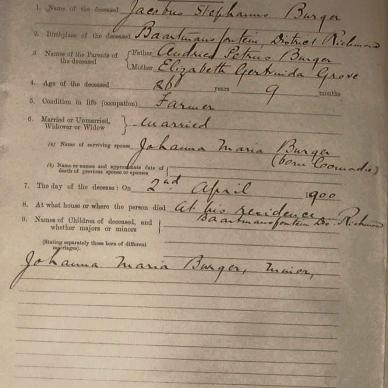 1. Name of the deceased Jacobus Stephanus Burger
2. Birthplace of the deceased Baartmansfontein, District Richmond
3. Names of the Parents of the deceased { Father Andries Petrus Burger
Mother Elizabeth Gertruida Grove
4. Age of the deceased 26 years 9 months
5. Condition in life (occupation) Farmer
6. Married or Unmarried, Widower or Widow } Married
(a) Name of surviving spouse Johanna Maria Burger
(born Coomadie)
(b) Name or names and approximate date of death of previous spouse or spouses
7. The day of the decease: On 2nd April 1900
8. At what house or where the person died At his residence
Baartmansfontein Do. Richmond
9. Names of Children of deceased, and whether majors or minors
(Stating separately those born of different marriages).
Johanna Maria Burger, minor,